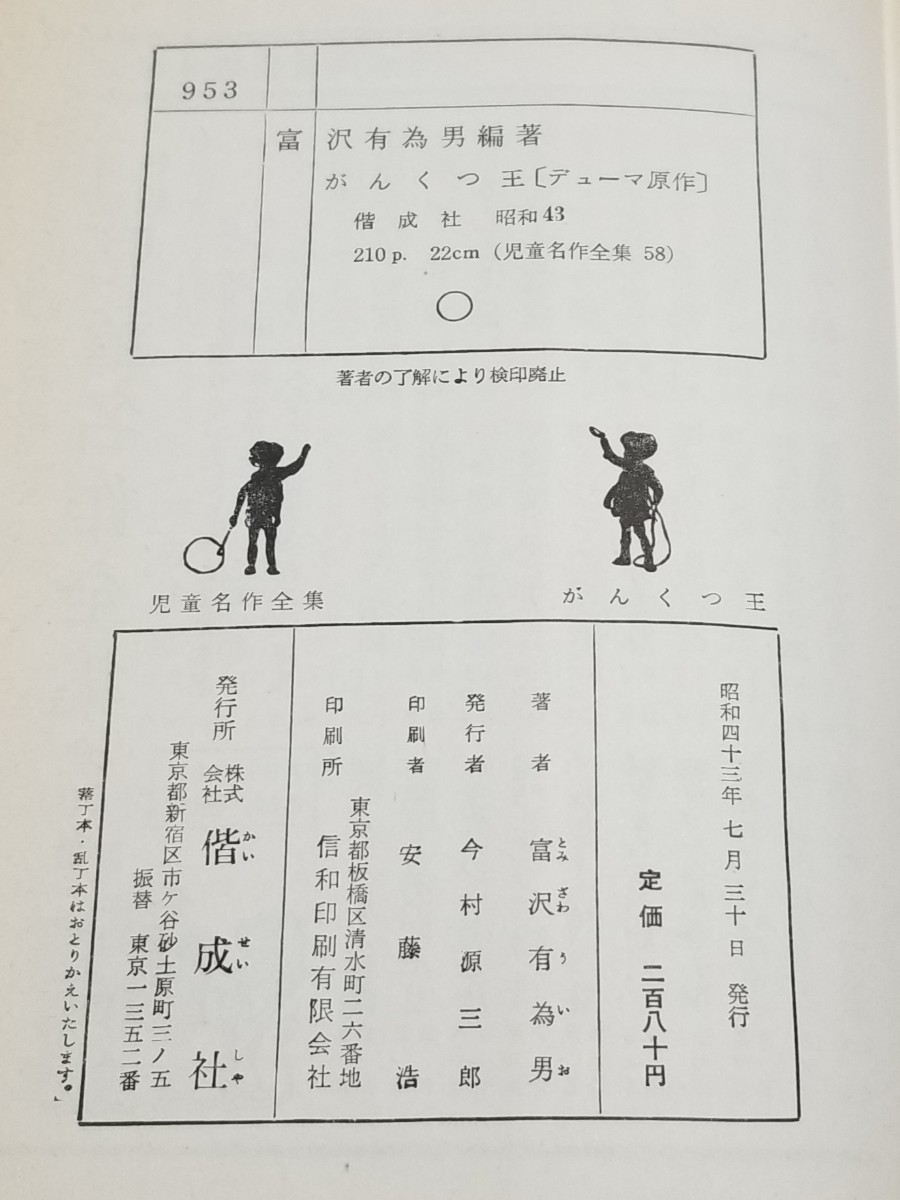 953
富 沢有為男編著
がんくつ王〔デューマ原作〕
偕成社 昭和43
210 p. 22cm (児童名作全集 58)
著者の了解により検印廃止
児童名作全集
がんくつ王
昭和四十三年 七月 三十日 発行
定価 二百八十円
著者 富沢有為男
とみざわういお
発行者 今村源三郎
印刷者 安藤浩
東京都板橋区清水町二六番地
印刷所 信和印刷有限会社
発行所 株式会社 偕成社
かいせいしや
東京都新宿区市ケ谷砂土原町三ノ五
振替 東京一三五二番
丁本・乱丁本はおとりかえいたします。」